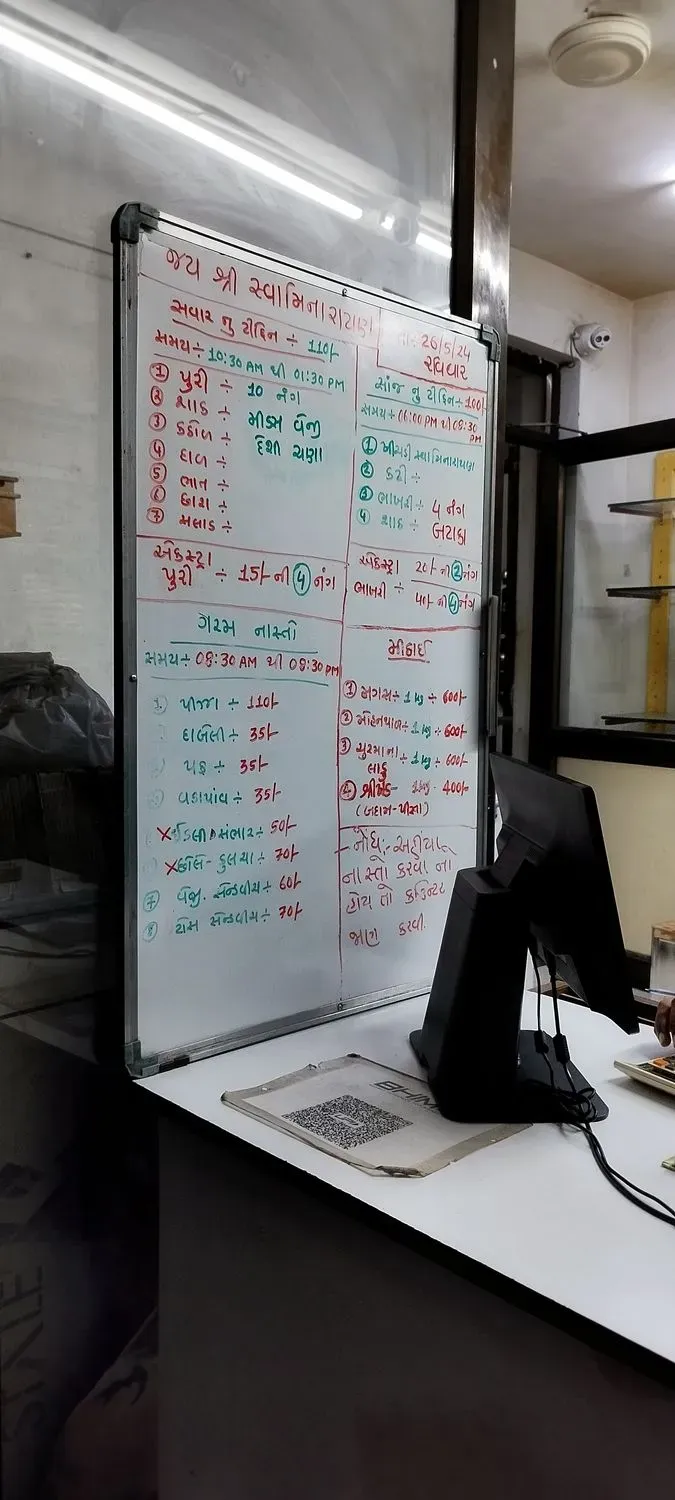 જય શ્રી સ્વામિનારાયણ
તા: 26/5/24
રવિવાર
સવાર નુ ટીફિન ÷ 110/-
સમય÷ 10:30 AM થી 01:30 PM
① પુરી ÷ 10 નંગ
② શાક ÷ મીક્સ વેજી
③ કઠોળ ÷ દેશી ચણા
④ દાળ ÷
⑤ ભાત ÷
⑥ છાશ ÷
⑦ સલાડ ÷
સાંજ નુ ટીફિન ÷ 100/-
સમય÷ 06:00 PM થી 08:30 PM
① ખીચડી સ્વામિનારાયણ
② કઢી ÷
③ ભાખરી ÷ 4 નંગ
④ શાક ÷ બટાકા
એકસ્ટ્રા
પુરી ÷ 15/- ની ④ નંગ
એકસ્ટ્રા
ભાખરી ÷
20/- ની ② નંગ
40/- ની ④ નંગ
ગરમ નાસ્તો
સમય÷ 08:30 AM થી 08:30 PM
પીજા ÷ 110/-
દાબેલી ÷ 35/-
પફ ÷ 35/-
વડાપાંવ ÷ 35/-
X ઈડલી સંભાર ÷ 50/-
X છોલે - કુલચા ÷ 70/-
⑦ વેજી. સેન્ડવીચ ÷ 60/-
⑧ ટોસ સેન્ડવીચ ÷ 70/-
મીઠાઈ
① મગસ ÷ 1 kg ÷ 600/-
② મોહનથાળ ÷ 1 kg ÷ 600/-
③ ચુરમાના લાડુ ÷ 1 kg ÷ 600/-
④ શ્રીખંડ - 1 kg - 400/-
(બદામ-પીસ્તા)
- નોંધ :- અહીંયા
નાસ્તો કરવા ના
હોય તો
જાણ કરવી.
BHIM